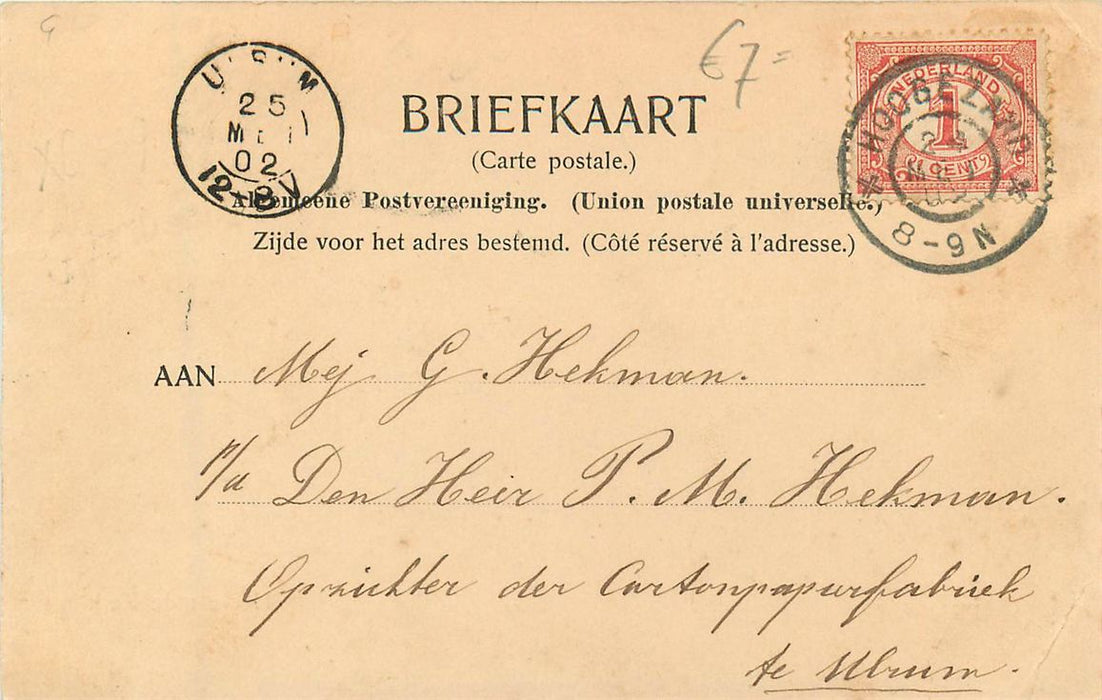 €7=
BRIEFKAART
(Carte postale.)
Algemeene Postvereeniging. (Union postale universelle.)
Zijde voor het adres bestemd. (Côté réservé à l'adresse.)
25
MEI
02
12-8V
NEDERLAND
1
CENT
8-9N
AAN Mej G. Hekman.
p/a Den Heir P. M. Hekman.
Opzichter der Cartonpapierfabriek
te Ulrum.